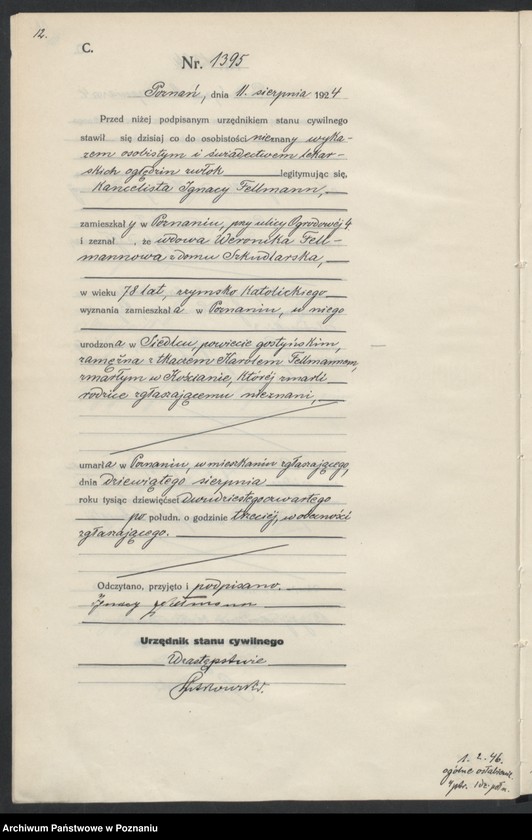 12.
C.
Nr. 1395
Poznań, dnia 11. sierpnia 1924
Przed niżej podpisanym urzędnikiem stanu cywilnego
stawił się dzisiaj co do osobistości nieznany wyka-
zem osobistym i świadectwem lekar-
skich oględzin zwłok legitymując się,
Kancelista Ignacy Fellmann,
zamieszkały w Poznaniu, przy ulicy Ogrodowej 4
i zeznał, że wdowa Weronika Fell-
mannowa z domu Szkudlarska,
w wieku 78 lat, rzymsko katolickiego
wyznania zamieszkała w Poznaniu, u niego
urodzona w Siedlcu, powiecie gostyńskim,
zamężna z tkaczem Karolem Fellmannem,
zmarłym w Kościanie, której zmarli
rodzice zgłaszającemu nieznani,
umarła w Poznaniu, w mieszkaniu zgłaszającego,
dnia dziewiątego sierpnia
roku tysiąc dziewięćset dwudziestego czwartego
po połudn. o godzinie trzeciej, w obecności
zgłaszającego.
Odczytano, przyjęto i podpisano.
Ignacy Fellmann
Urzędnik stanu cywilnego
W zastępstwie
1. 2. 46.
ogólne osłabienie.
Archiwum Państwowe w Poznaniu